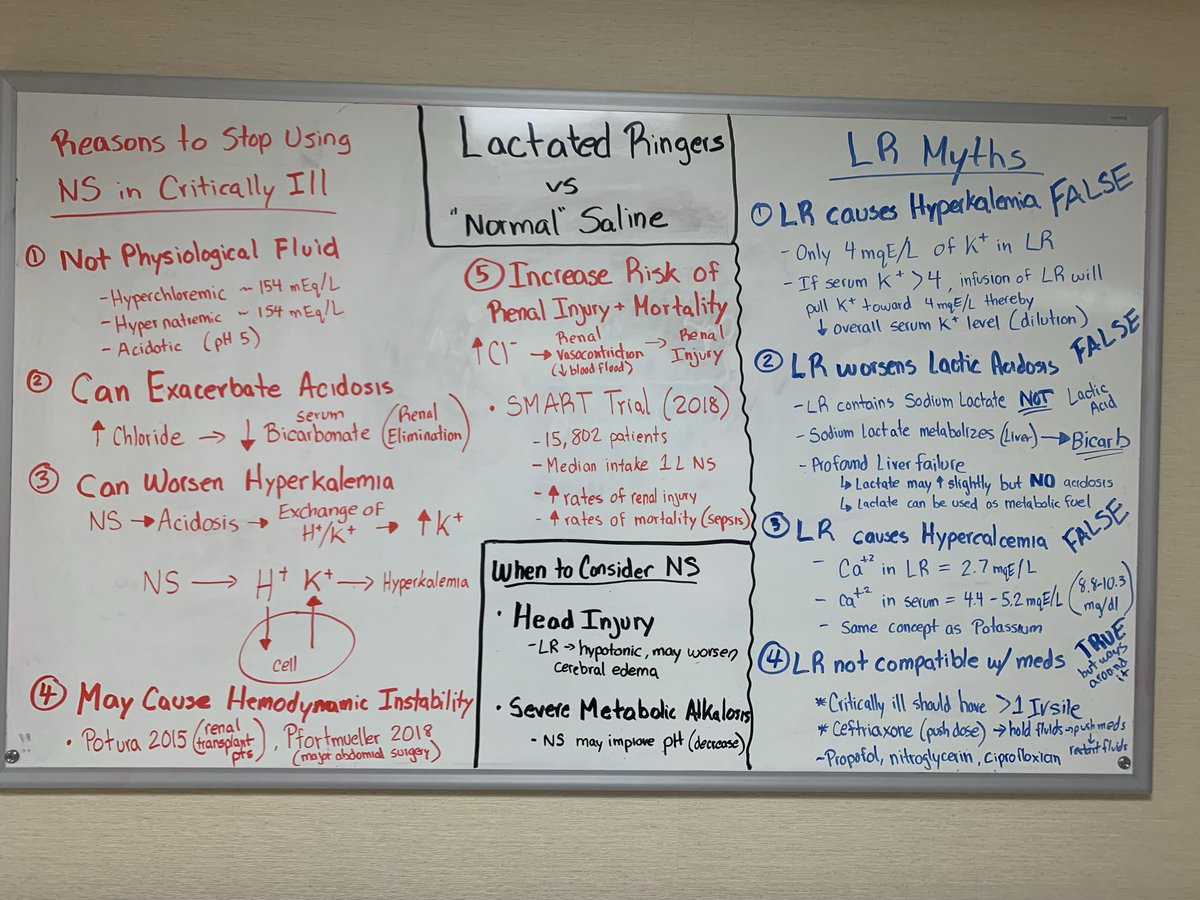 Lactated Ringers
vs
"Normal" Saline
Reasons to Stop Using
NS in Critically Ill
① Not Physiological Fluid
- Hyperchloremic ~ 154 mEq/L
- Hypernatremic ~ 154 mEq/L
- Acidotic (pH 5)
② Can Exacerbate Acidosis
↑ Chloride → ↓ serum Bicarbonate (Renal Elimination)
③ Can Worsen Hyperkalemia
NS → Acidosis → Exchange of H⁺/K⁺ → ↑ K⁺
NS → H⁺ K⁺ → Hyperkalemia
cell
④ May Cause Hemodynamic Instability
• Potura 2015 (renal transplant pts), Pfortmueller 2018 (major abdominal surgery)
⑤ Increase Risk of
Renal Injury + Mortality
↑ Cl⁻ → Renal Vasocontriction (↓ blood flood) → Renal Injury
• SMART Trial (2018)
- 15,802 patients
- Median intake 1 L NS
- ↑ rates of renal injury
- ↑ rates of mortality (sepsis)
When to Consider NS
• Head Injury
- LR → hypotonic, may worsen
cerebral edema
• Severe Metabolic Alkalosis
- NS may improve pH (decrease)
LR Myths
① LR causes Hyperkalemia FALSE
- Only 4 mqE/L of K⁺ in LR
- If serum K⁺ > 4, infusion of LR will
pull K⁺ toward 4 mqE/L thereby
↓ overall serum K⁺ level (dilution)
② LR worsens Lactic Acidosis FALSE
- LR contains Sodium Lactate NOT Lactic Acid
- Sodium Lactate metabolizes (Liver) → Bicarb
- Profound Liver failure
↳ Lactate may ↑ slightly but NO acidosis
↳ lactate can be used as metabolic fuel
③ LR causes Hypercalcemia FALSE
- Ca⁺² in LR = 2.7 mqE/L
- Ca⁺² in serum = 4.4 - 5.2 mqE/L (8.8-10.3 mg/dl)
- Same concept as Potassium
④ LR not compatible w/ meds TRUE but ways around it
* Critically ill should have > 1 IV site
* Ceftriaxone (push dose) → hold fluids → push meds
↓
restart fluids
- Propofol, nitroglycerin, ciprofloxian